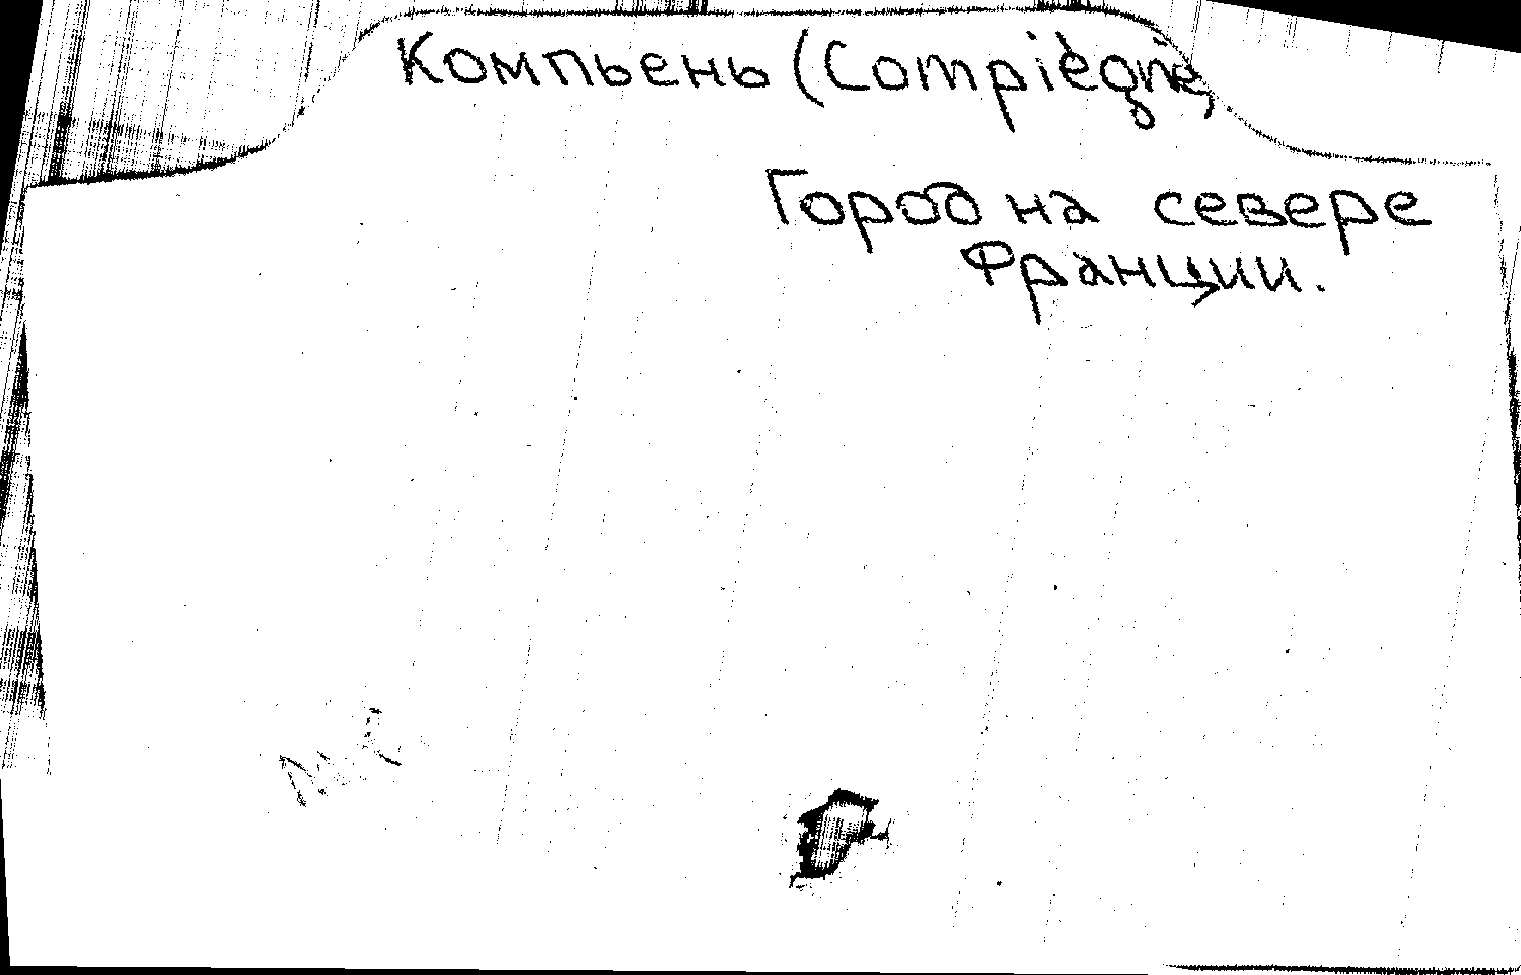 Компьень (Compiègne)
Город на севере
Франции.